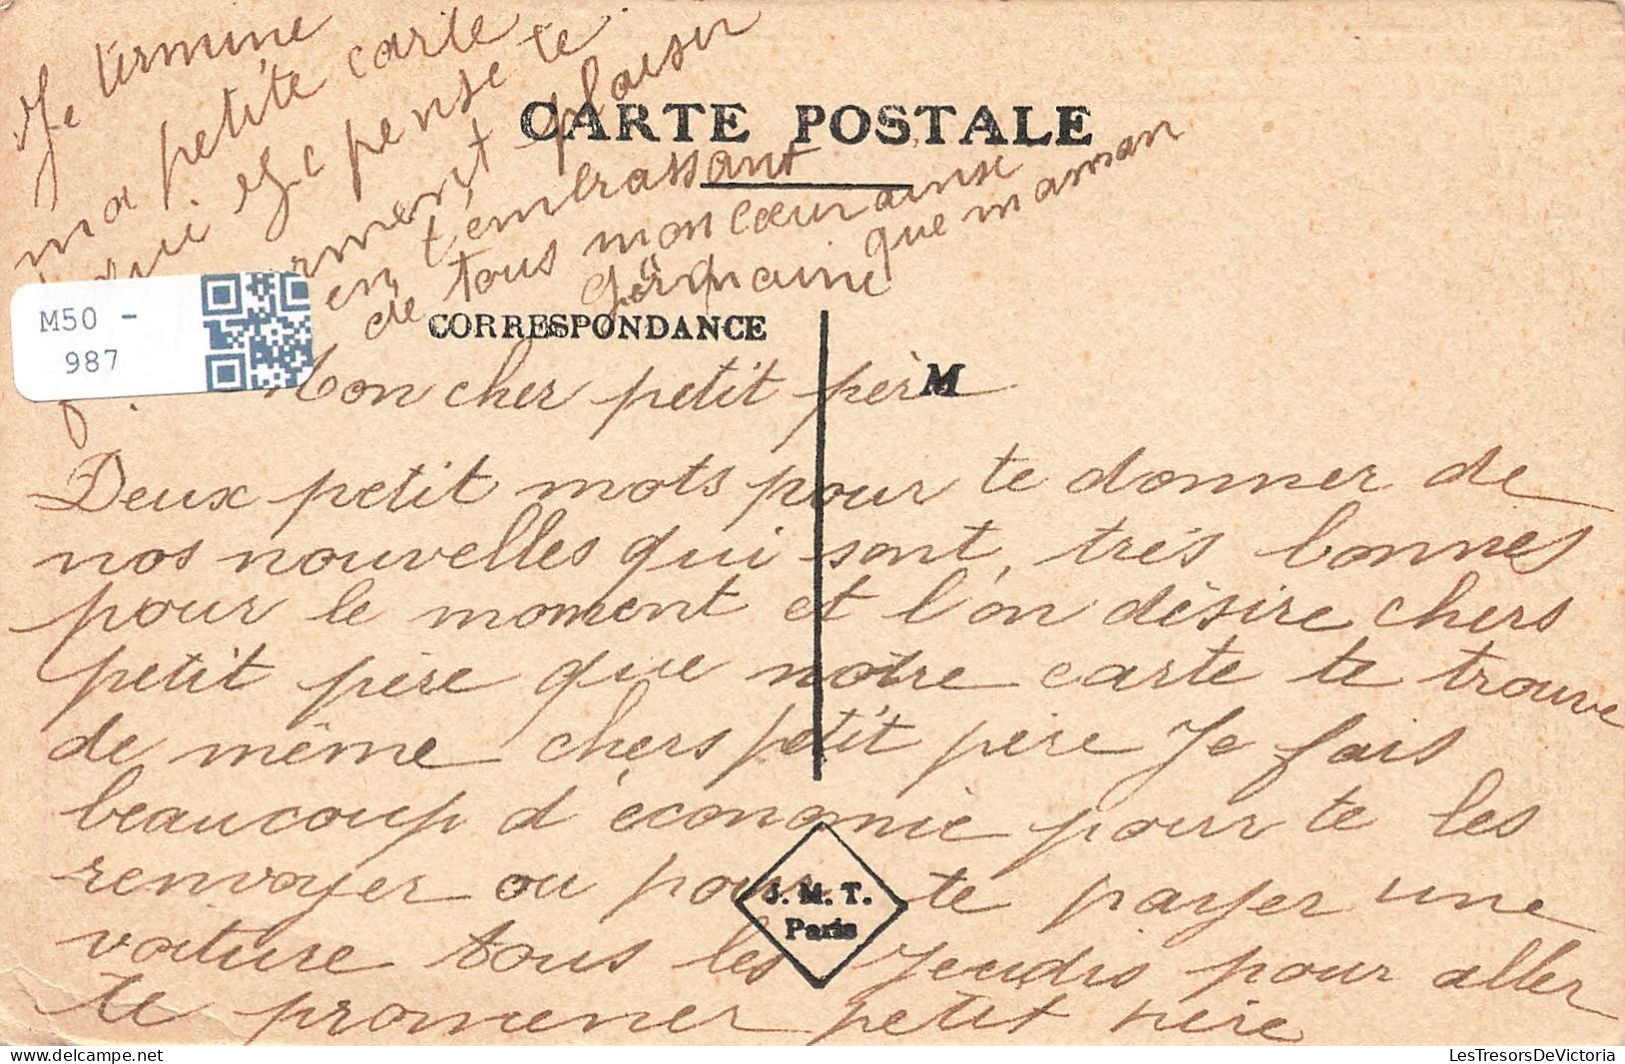 Je termine
ma petite carte
qui et pense te
en plaisir
en t'embrassant
de tous mon coeur ainsi
que maman
Germaine
CARTE POSTALE
CORRESPONDANCE
M50 -
987
Mon cher petit père
M
Deux petit mots pour te donner de
nos nouvelles qui sont, très bonnes
pour le moment et l'on désire chers
petit père que notre carte te trouve
de même chers petit père Je fais
beaucoup d'économie pour te les
renvoyer ou pour te payer une
voiture tous les Jeudis pour aller
te promener petit père
J. M. T.
Paris
LesTresorsDeVictoria